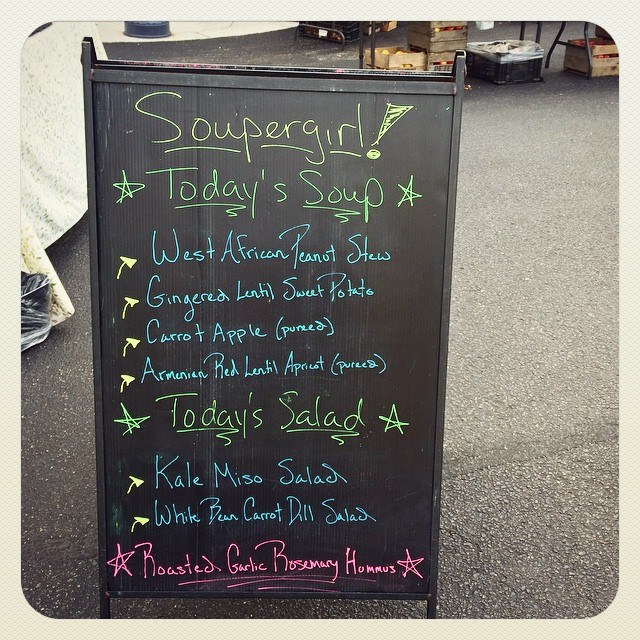 Soupergirl!
Today's Soup
West African Peanut Stew
Gingered Lentil Sweet Potato
Carrot Apple (pureed)
Armenian Red Lentil Apricot (pureed)
Today's Salad
Kale Miso Salad
White Bean Carrot Dill Salad
Roasted Garlic Rosemary Hummus